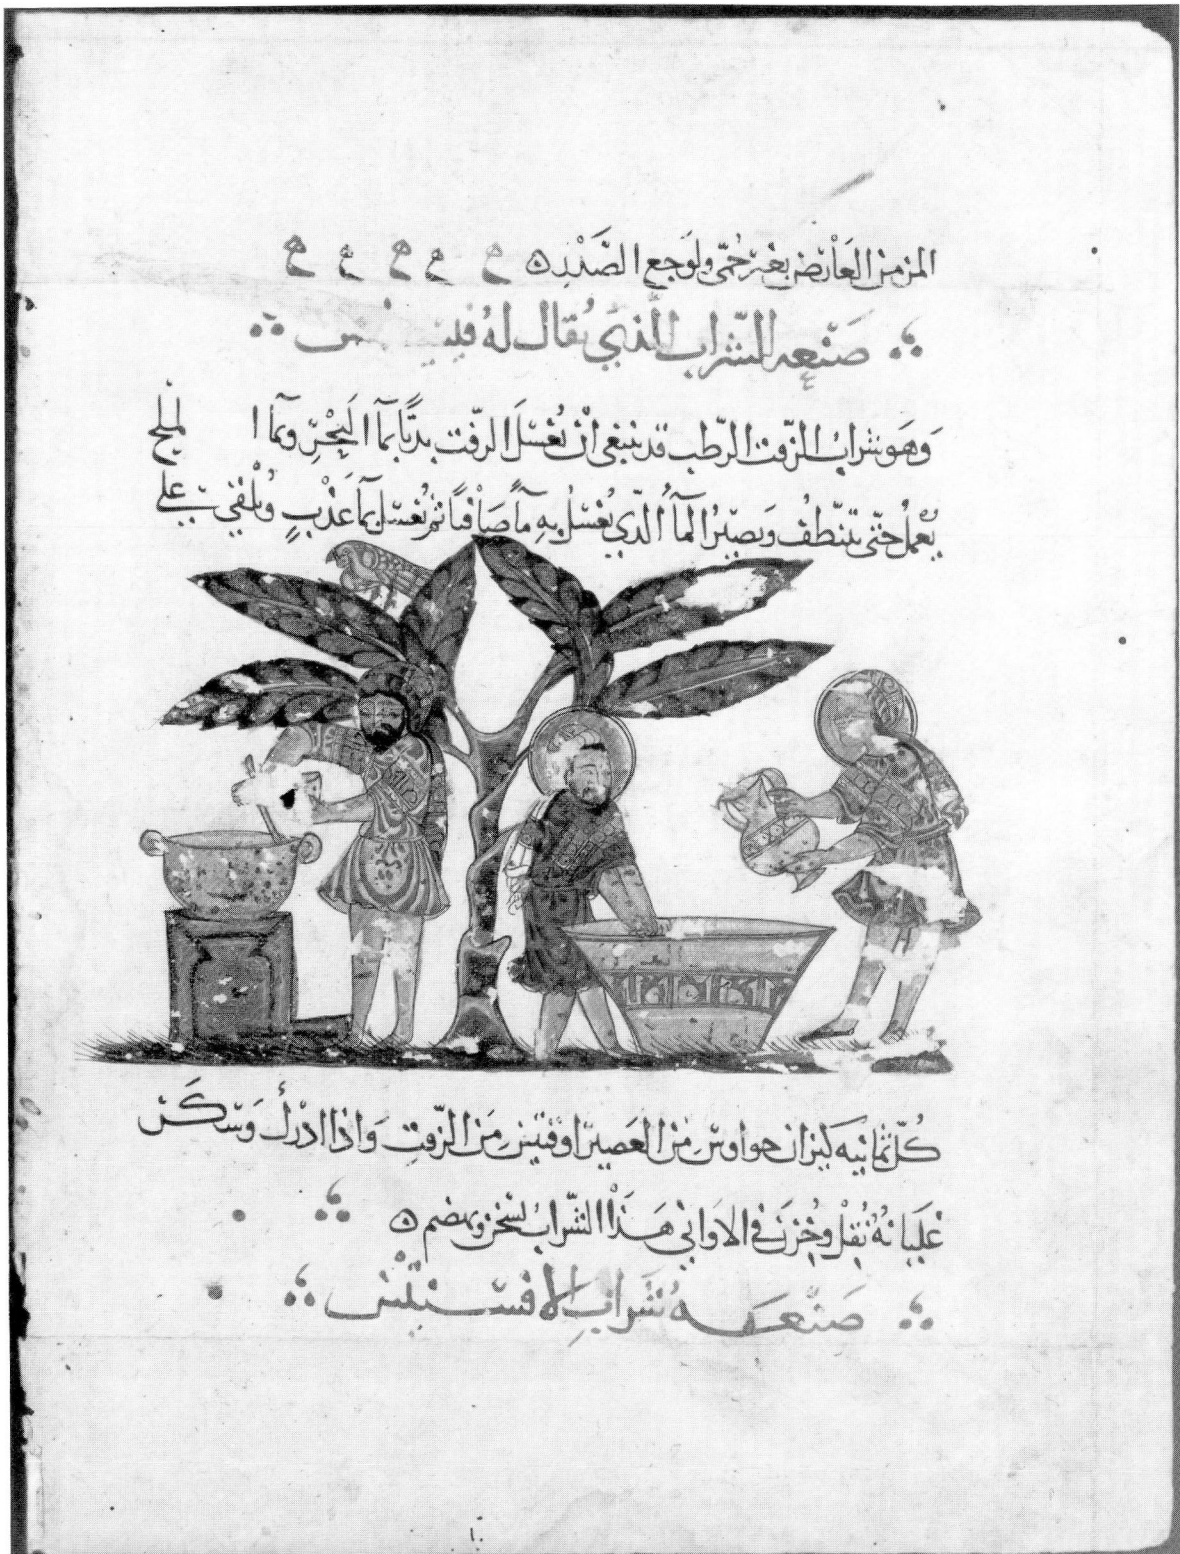 المزمن العارض بغير حمى ولوجع الصدر ه
صنعه الشراب الذي يقال له
وهو شراب الزفت الرطب قد ينبغي ان يغسل الزفت بديًا بمآ البحر وبمآ الملح
يعمل حتى يتنظف ويصير المآ الذي يغسل به مآً صافيًا ثم يغسل بمآ عذب ويلقى على
كل ثمانيه كيزان من العصير اوقيتين من الزفت واذا ادرك وسكن
غليانه نقل وخزن في الاواني هذا الشراب يسخن ويهضم ه
صنعه شراب الافسنتين